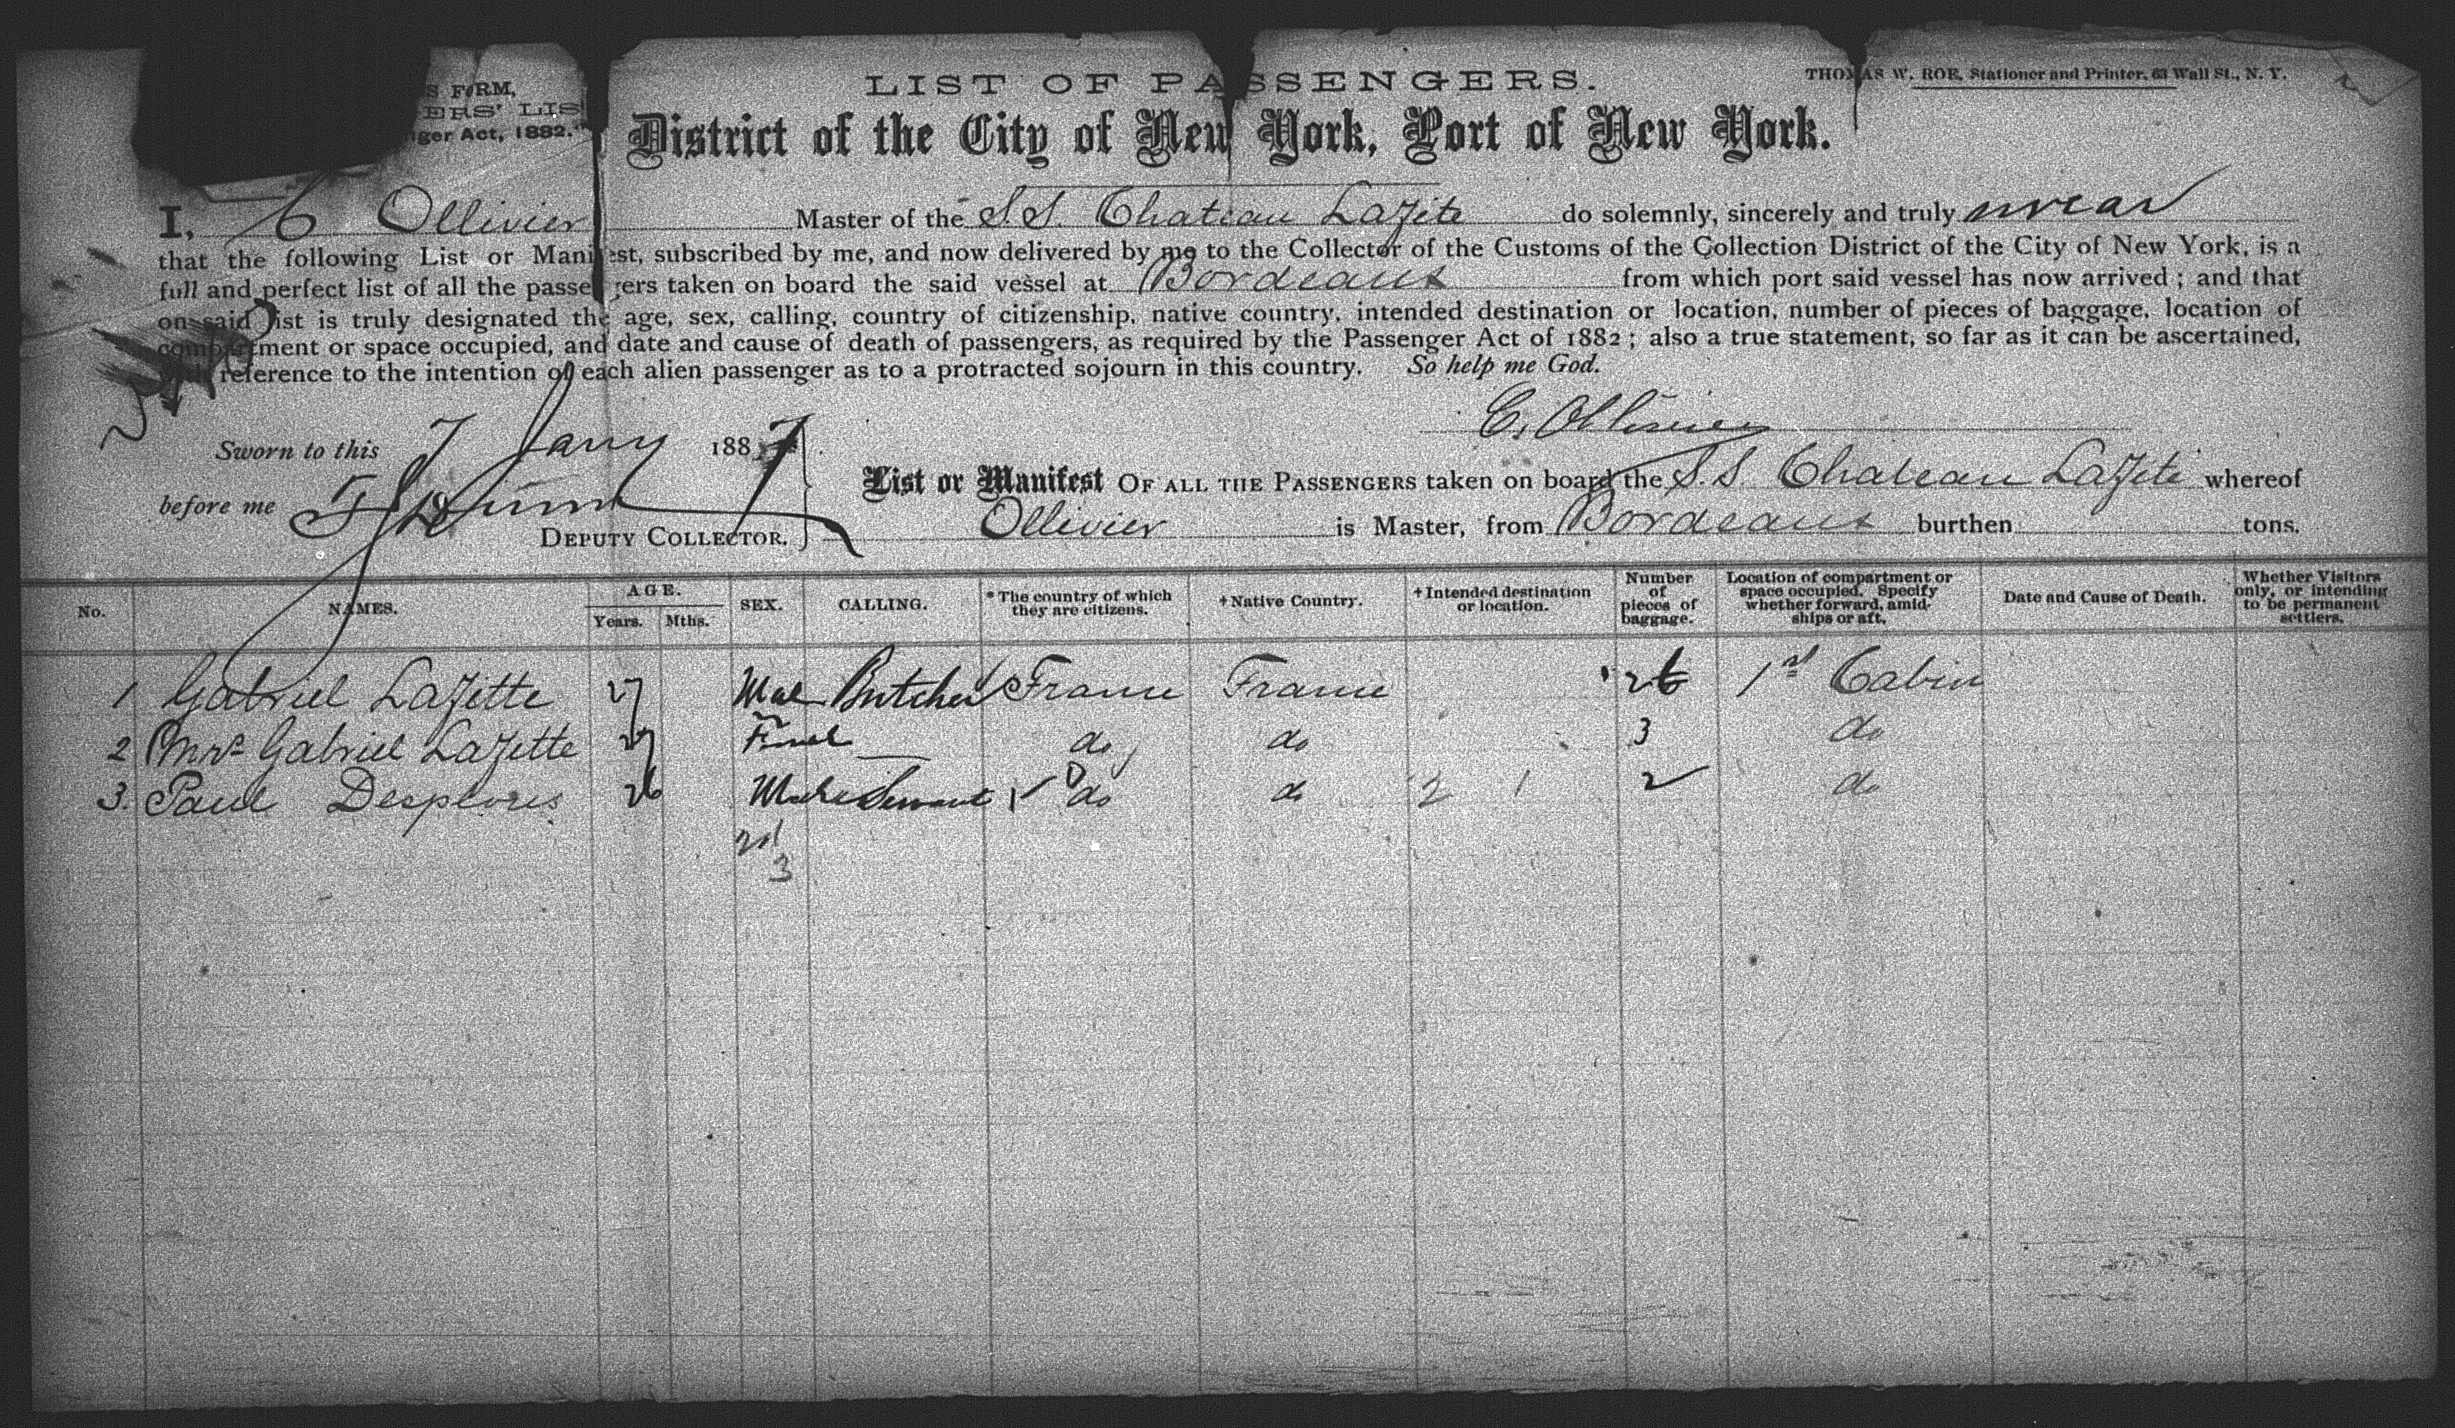 S FORM,
ERS' LIS
nger Act, 1882.
LIST OF PASSENGERS.
THOMAS W. ROE, Stationer and Printer, 63 Wall St., N. Y.
District of the City of New York, Port of New York.
I, C Ollivier Master of the S.S. Chateau Lafite do solemnly, sincerely and truly swear
that the following List or Manifest, subscribed by me, and now delivered by me to the Collector of the Customs of the Collection District of the City of New York, is a
full and perfect list of all the passengers taken on board the said vessel at Bordeaux from which port said vessel has now arrived ; and that
on said list is truly designated the age, sex, calling, country of citizenship, native country, intended destination or location, number of pieces of baggage, location of
compartment or space occupied, and date and cause of death of passengers, as required by the Passenger Act of 1882 ; also a true statement, so far as it can be ascertained,
reference to the intention of each alien passenger as to a protracted sojourn in this country. So help me God.
C. Ollivier
Sworn to this 7 Jany 1887
before me
DEPUTY COLLECTOR.
List or Manifest OF ALL THE PASSENGERS taken on board the S.S. Chateau Lafite whereof
Ollivier is Master, from Bordeaux burthen tons.
No. NAMES. AGE. Years. Mths. SEX. CALLING. *The country of which they are citizens. +Native Country. +Intended destination or location. Number of pieces of baggage. Location of compartment or space occupied. Specify whether forward, amidships or aft. Date and Cause of Death. Whether Visitors only, or intending to be permanent settlers.
1 Gabriel Lafette 27 Male Butcher France France 26 1st Cabin
2 Mrs Gabriel Lafette 27 do do 3 do
3. Paul 26 Male Servant do do 2 1 2 do
3